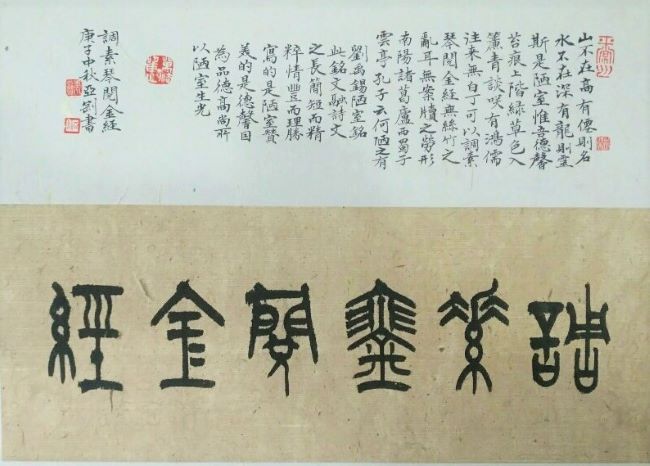 山不在高有僊則名
水不在深有龍則靈
斯是陋室惟吾德馨
苔痕上階綠草色入
簾青談咲有鴻儒
往来無白丁可以調素
琴閱金經無絲竹之
亂耳無案牘之勞形
南陽諸葛廬西蜀子
雲亭孔子云何陋之有
劉禹錫陋室銘
此銘文融詩文
之長簡短而精
粹情豐而理勝
寫的是陋室贊
義的是德馨因
為品德高尚所
以陋室生光
調素琴閱金經
庚子中秋亞書
調素琴閱金經